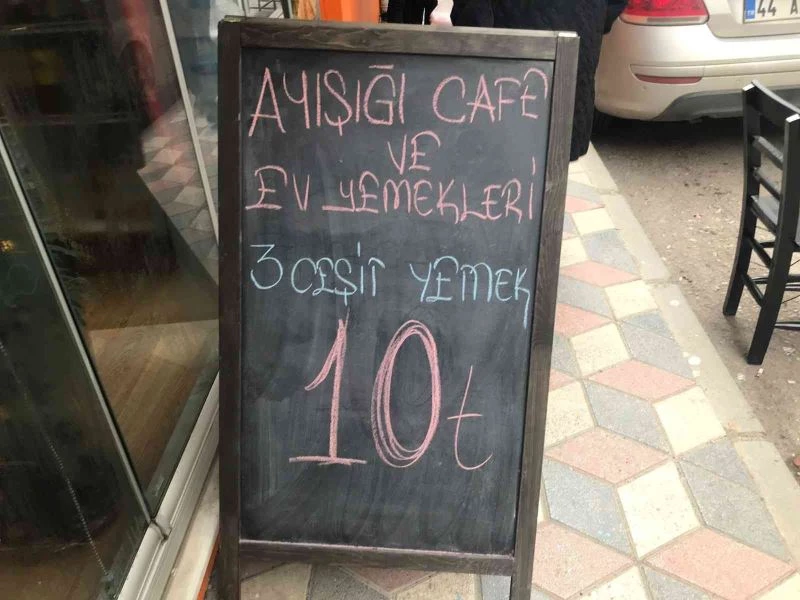 AYIŞIĞI CAFE
VE
EV YEMEKLERİ
3 CEŞİT YEMEK
10 t
44 A